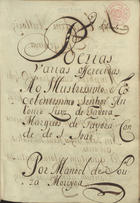 Poezias
varias offerecidas
Ao Illustrissimo e Ex
celentissimo Senhor An
tonio Luis de Tavora
Marquez de Tavora Con
de de S. Joaõ
Por Manoel de Sou
za Moreyra